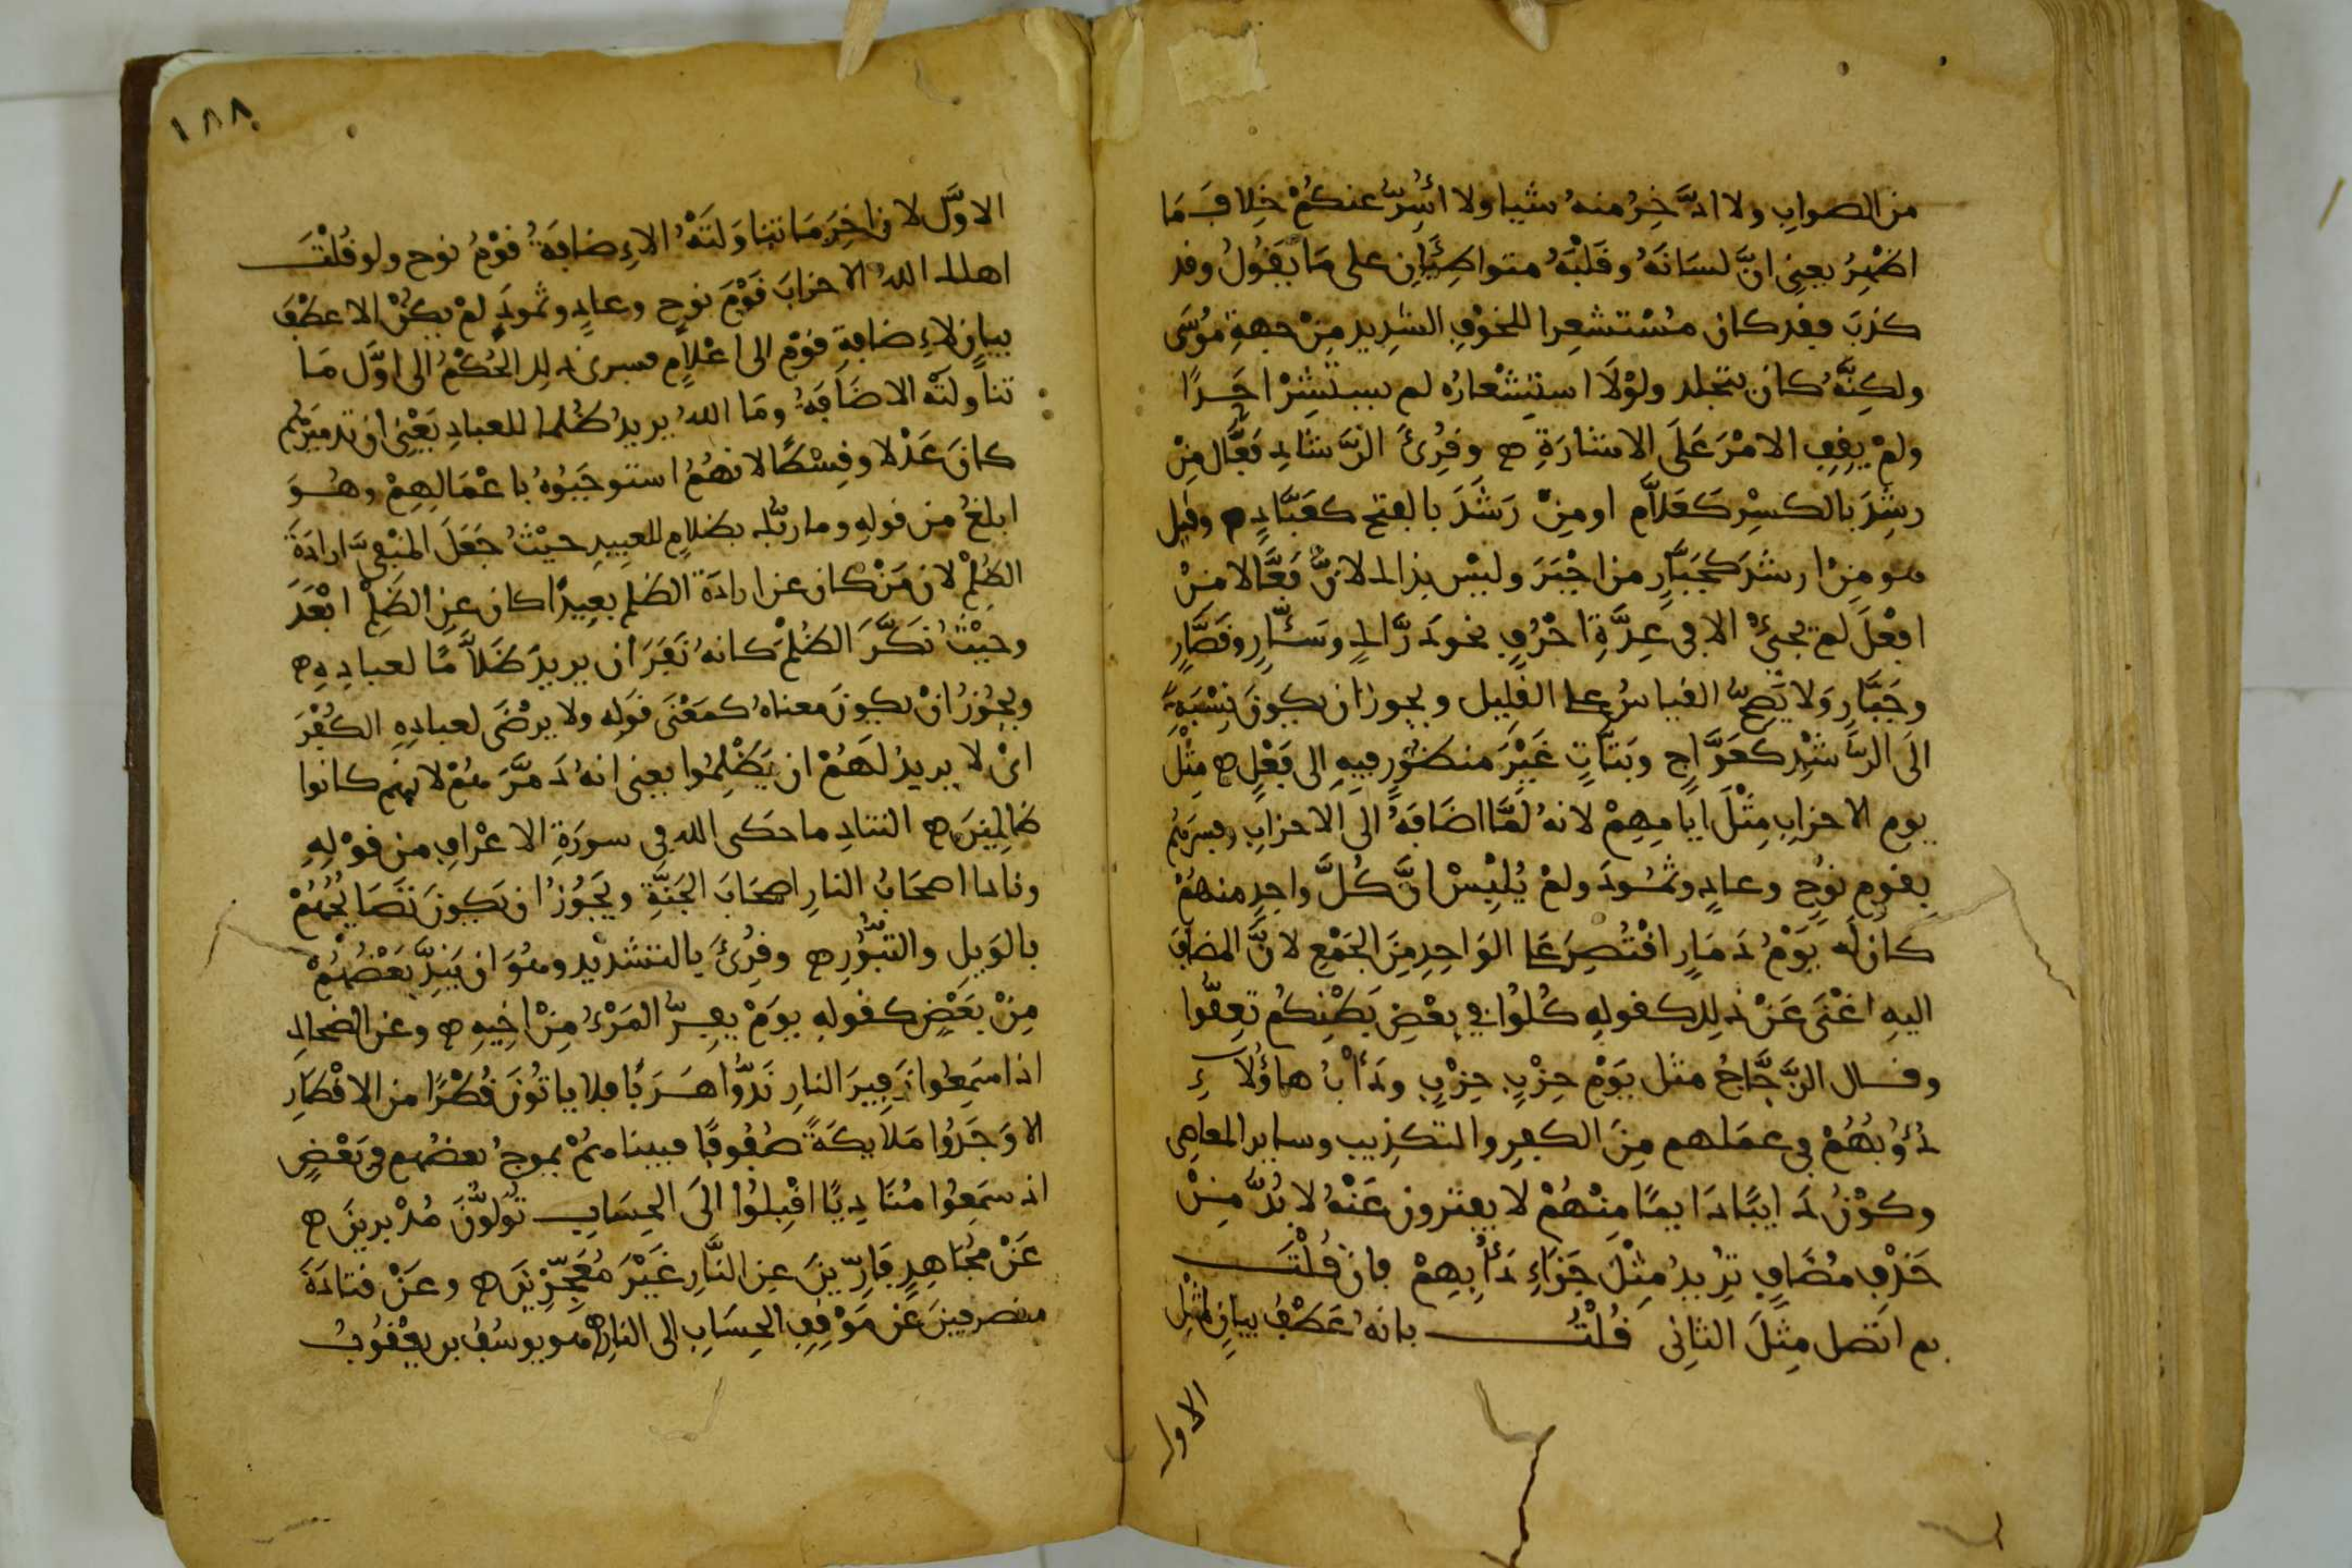 من الصواب ولا ادَّخِرُ منهُ شيا ولا أُسِرُّ عنكُمْ خِلافَ مَا
اظْهِرُ يعنِى انَّ لسَانَهُ وقَلْبَهُ متواطِيَانِ على مَا يَقُولُ وقد
كذبَ فقد كان مُسْتشعِرا للخوْفِ الشدِيدِ مِنْ جهةِ مُوسَى
ولكِنَّهُ كان يتجلد ولوْلَا استِشْعارُه لم يستشِرْ احَدًا
ولمْ يقِفِ الامْرَ عَلَى الاشارَةِ ه وقُرِئَ الرَّشادِ فَعَّال مِنْ
رشِدَ بالكسْرِ كَعَلاَّمِ او مِنْ رَشَدَ بالفتح كعَبَّادٍ ه وقيل
هو مِنْ ارشدَ كجَبَّارِ من اجْبَرَ وليْس بذاك لانَّ فَعَّالا منْ
افْعَلَ لم يجئْ الا فى عِدَّةِ احْرُفٍ نحو دَرَّاكٍ وسَئَّارٍ وقَصَّارٍ
وجَبَّارِ وَلا يَصِحُّ القياسُ على القَلِيل ويجوز ان يكونَ نِسْبَةً
الَى الرُّشْدِ كعَوَّاجِ وبَتَّاتٍ غَيْرَ منظُورٍ فيهِ الى فِعْلٍ ه مِثْلَ
يوم الاحزابِ مِثْلَ ايامِهِمْ لانهُ لَمَّا اضَافَهُ الى الاحزابِ وفسرَهُم
بقومِ نوُحٍ وعادٍ وثمُودَ ولمْ يُلْبِسْ انَّ كُلَّ واحِدٍ منهُمْ
كان لَه يَوْمُ دَمَارٍ اقْتُصِرَ عَلَى الوَاحِدِ مِنَ الجَمْعِ لانَّ المضافَ
اليهِ اغْنَى عَنْ ذلِك كقولهِ كُلُوا فِي بعْضِ بَطْنِكُم تَعِفُّوا
وقال الزَّجَّاجُ مثل يَوْمِ حِزْبٍ حِزْبٍ ودَأْبُ هاؤُلَاءِ
دُؤُبُهُمْ فى عمَلهم مِنَ الكفرِ والتكذِيب وساير المعاصِى
وكوْنُ دَايبًا دَايمًا مِنْهُمْ لا يفترون عَنْهُ لا بُدَّ مِنْ
حَذْفِ مُضَافٍ تُرِيدُ مِثْلَ جَزَاءِ دَأْبِهِمْ فان قُلْتَ
بم اتصل مِثْلَ الثانِى قُلْتُ بانهُ عَطْفُ بيانٍ لمثْلِ
الاول
١٨٨
الاوَّل لان اخِرَ مَا تناوَلتَهُ الاِضافَةُ قوْمُ نوح ولو قُلْتَ
اهلك اللهُ الاحزابَ قَوْمَ نوحٍ وعادٍ وثمودَ لمْ يكُنْ الا عطْفَ
بيانٍ لاِضافةِ قوْمٍ الى اعْلامٍ فسرى ذلك الحُكْمُ الى اوَّل مَا
تناولتْهُ الاضَافَةُ ومَا اللهُ يريدُ ظُلما للعبادِ يَعْنِى ان تدميرَهُم
كانَ عَدْلا وقِسْطًا لانهُمُ استوجَبُوهُ باعْمَالِهِمْ وهُوَ
ابلغُ من قولهِ وما ربُّك بظلامٍ للعبيدِ حيْثُ جَعَلَ المنْفِىَّ ارادَةَ
الظُلْمِ لان مَنْ كان عن ارادَة الظلم بعِيدًا كان عنِ الظُلمْ ابْعَدَ
وحيْثُ نَكَّرَ الظُلْمَ كانهُ نَفَى ان يريدَ ظَلاَّمًا لعبادِهِ ه
ويجُوزُ انْ يكونَ معناهُ كمَعْنَى قَوْلهِ ولا يرْضَى لعبادِهِ الكُفْرَ
اىْ لا يريدُ لَهُمْ ان يَظْلِمُوا يعنى انهُ دَمَّرَهُمْ لانهم كانوا
ظَالِمِينَ ه التنادِ ما حكَى الله فى سورَةِ الاعْرافِ من قوْلِهِ
ونادا اصحَابُ النارِ اصْحَابَ الجَنَّةِ ويَجُوزُ ان يكونَ تَصَايُحُهُمْ
بالوَيلِ والثبُورِ ه وقُرِئَ بالتشدْيدِ وهُوَ ان يَنِدَّ بَعْضُهُمْ
مِنْ بَعْضٍ كقولهِ يومَ يفِرُّ المَرْءُ مِنْ اخِيهِ ه وعن الضحاك
اذا سَمِعُوا زَفِيرَ النارِ نَدُّوا هَرَبًا فلا ياتُونَ قُطْرًا من الاقْطارِ
الا وَجَدُوا مَلايكَةً صُفُوفًا فبيناهُمْ يموجُ بعضُهم فى بَعْضٍ
اذ سمَعِوُا مُنَادِيًا اقْبِلُوا الَى الحِسَابِ تُوَلُّونَ مُدْبرينَ ه
عَنْ مُجَاهِدٍ فَارِّينَ عنِ النَّارِ غَيْرَ مُعَجِّزِينَ ه وعَنْ قتادَةَ
منصرفينَ عَن مَوْقِفِ الحِسَابِ الى النارِ ه هو يوسُفُ بن يعْقُوبُ